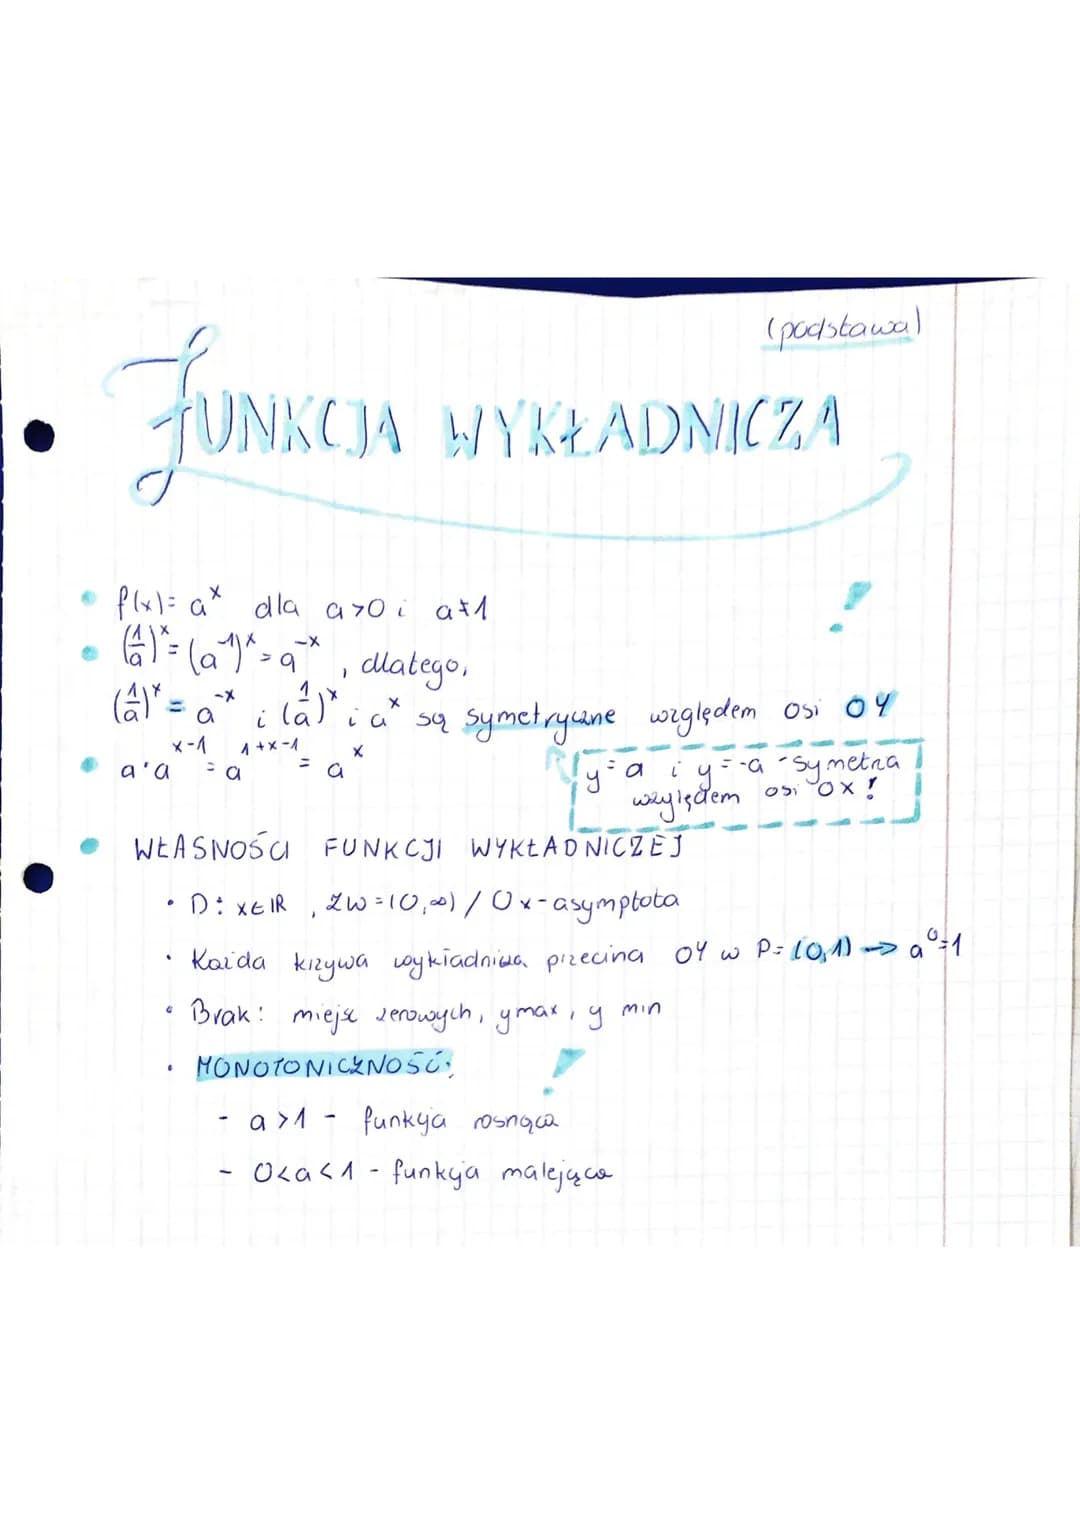 (podstawa)
FUNKCJA WYKŁADNICZA
f(x)= aˣ dla a>0 i a≠1
(1/a)ˣ = (a⁻¹)ˣ = a⁻ˣ, dlatego,
(1/a)ˣ = a⁻ˣ i (1/a)ˣ i aˣ są symetryczne względem osi OY
a·aˣ⁻¹ = a¹⁺ˣ⁻¹ = aˣ
y=a i y=-a - symetria
względem osi OX!
WŁASNOŚCI FUNKCJI WYKŁADNICZEJ
D: x∈ℝ, ZW=(0,∞) / Ox-asymptota
Każda krzywa wykładnicza przecina OY w P=(0,1) → a⁰=1
Brak: miejsc zerowych, ymax, y min
MONOTONICZNOŚĆ:
- a>1 - funkcja rosnąca
- 0<a<1 - funkcja malejąca